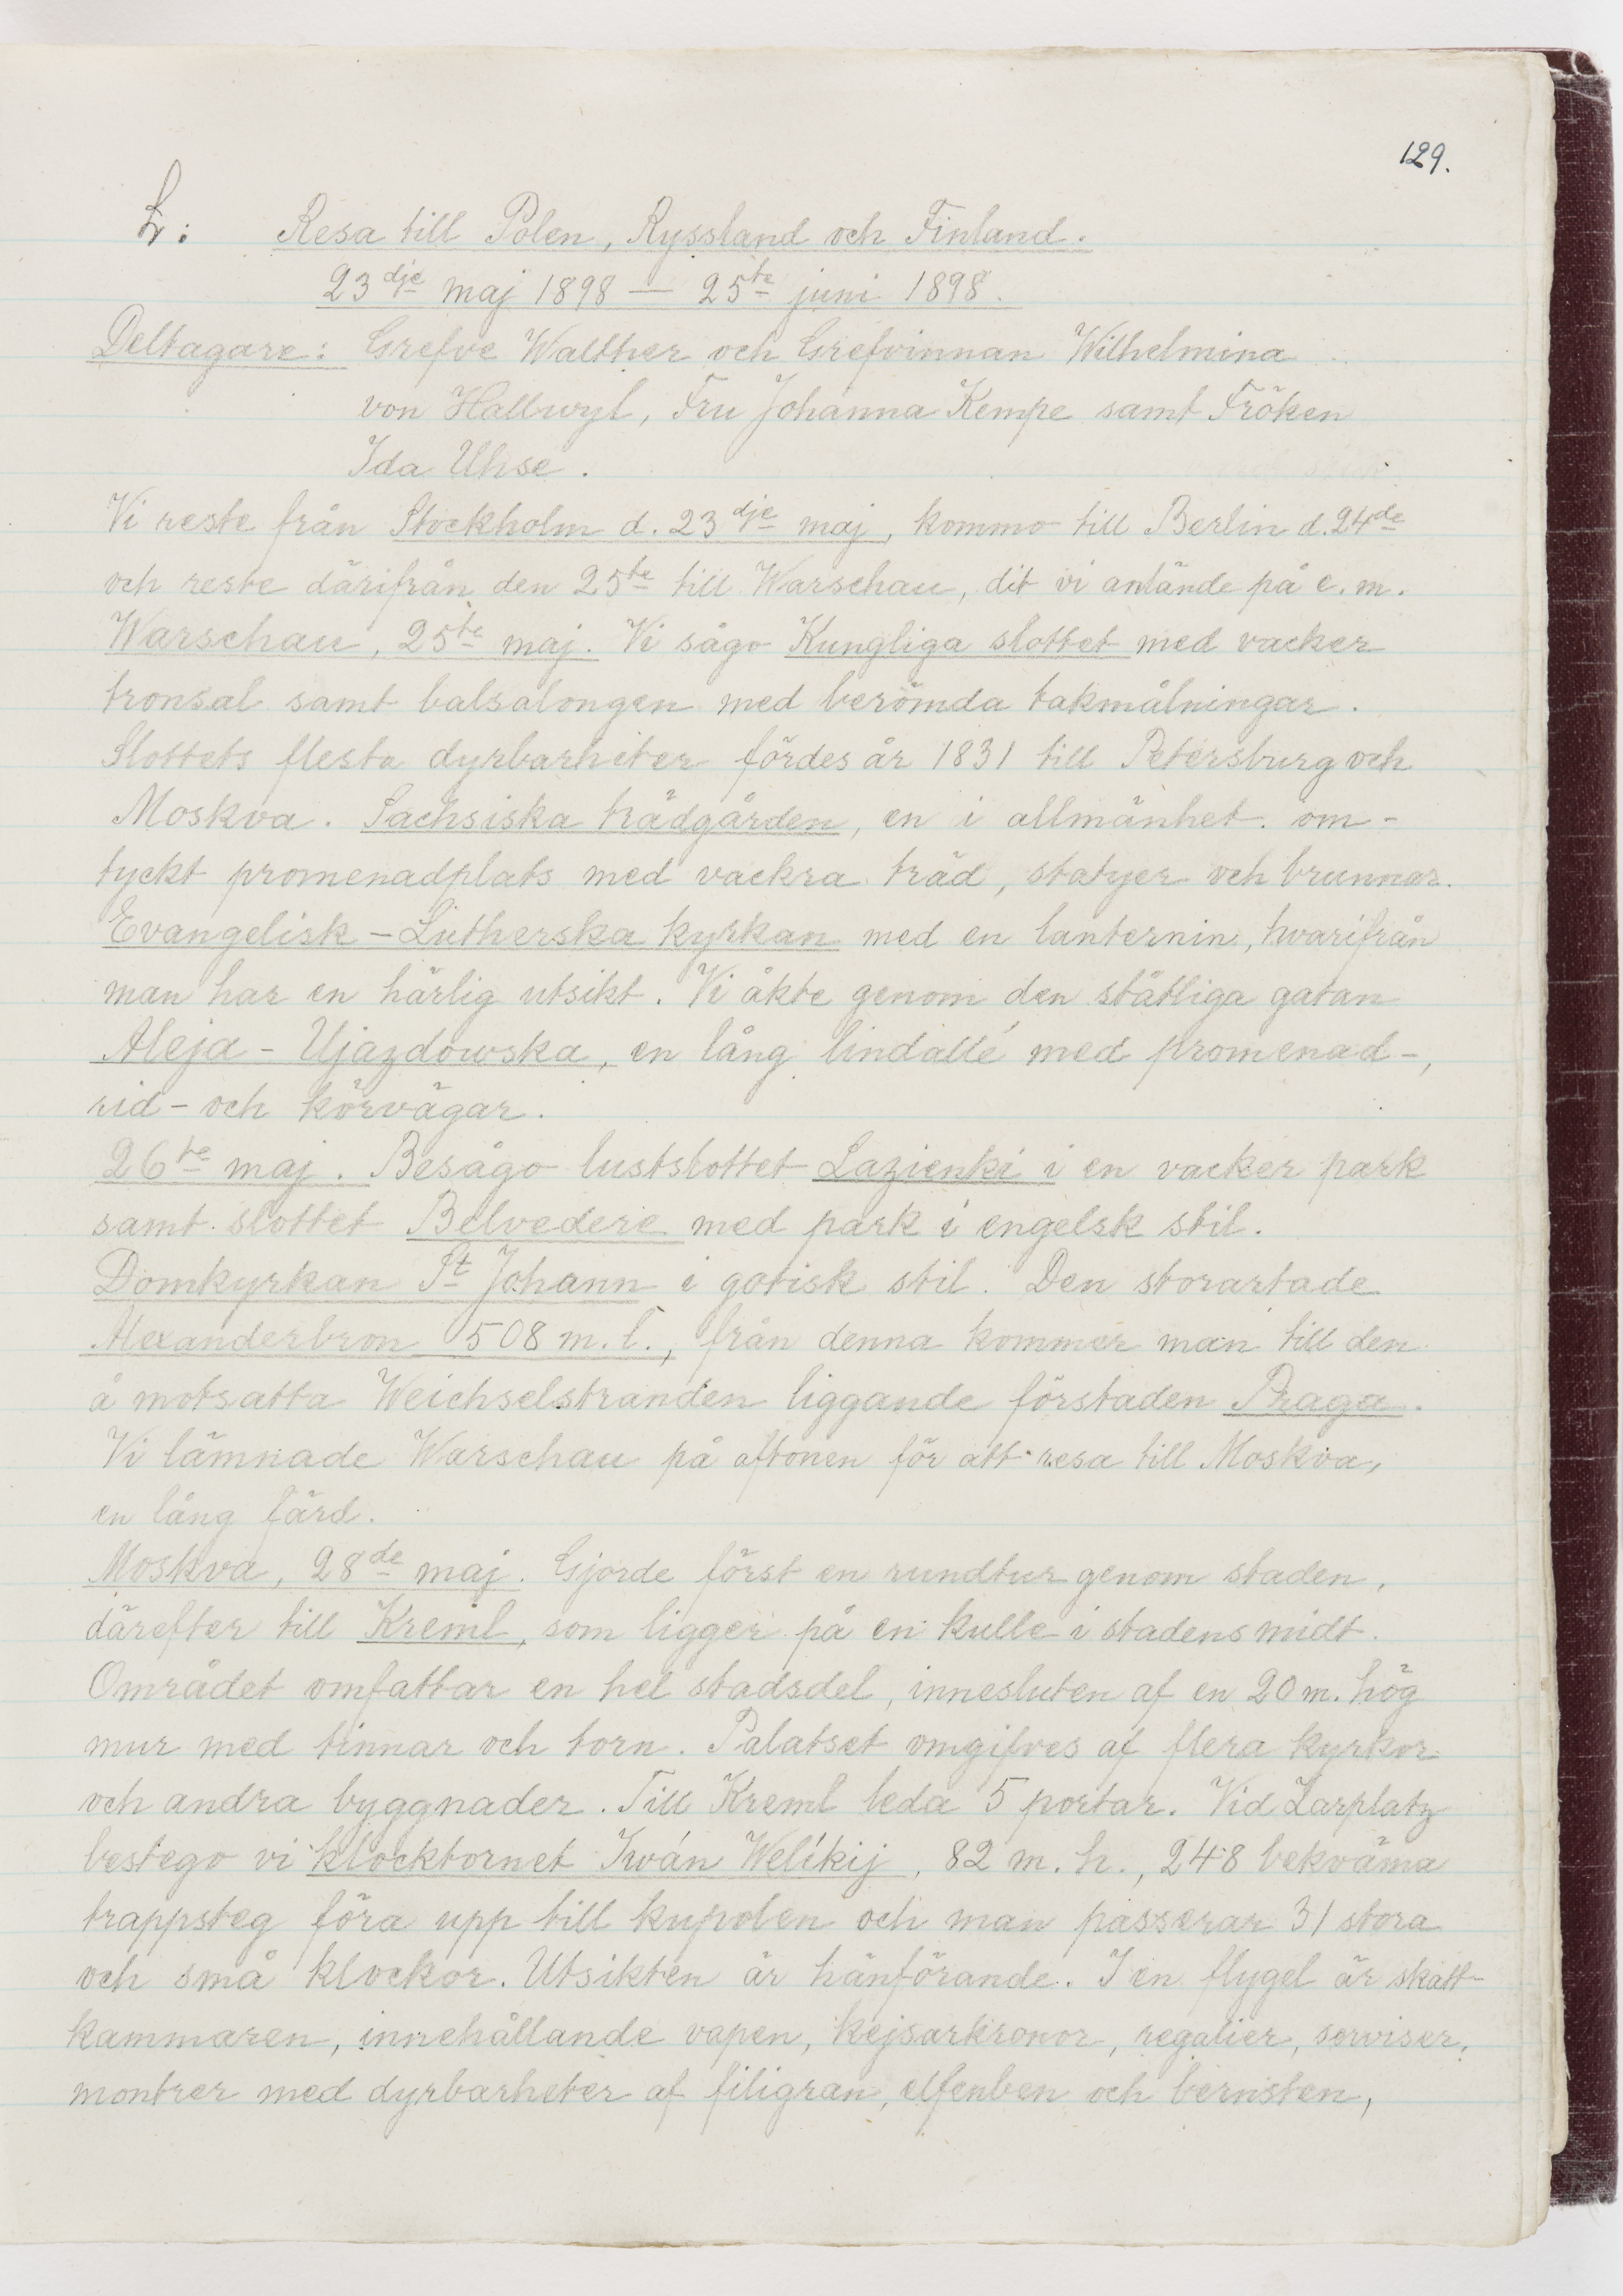 129.
L: Resa till Polen, Ryssland och Finland.
23dje maj 1898 — 25te juni 1898.
Deltagare: Grefve Walther och Grefvinnan Wilhelmina
von Hallwyl, Fru Johanna Kempe samt Fröken
Ida Uhse.
Vi reste från Stockholm d. 23dje maj, kommo till Berlin d. 24de
och reste därifrån den 25te till Warschau, dit vi anlände på e. m.
Warschau, 25te maj. Vi sågo Kungliga slottet med vacker
tronsal samt balsalongen med berömda takmålningar.
Slottets flesta dyrbarheter fördes år 1831 till Petersburg och
Moskva. Sachsiska trädgården, en i allmänhet om-
tyckt promenadplats med vackra träd, statyer och brunnar.
Evangelisk-Lutherska kyrkan med en lanternin, hvarifrån
man har en härlig utsikt. Vi åkte genom den ståtliga gatan
Aleja-Ujazdowska, en lång lindallé med promenad-,
rid- och körvägar.
26te maj. Besågo lustslottet Lazienki i en vacker park
samt slottet Belvedere med park i engelsk stil.
Domkyrkan St Johann i gotisk stil. Den storartade
Alexanderbron 508 m. l., från denna kommer man till den
å motsatta Weichselstranden liggande förstaden Praga.
Vi lämnade Warschau på aftonen för att resa till Moskva,
en lång färd.
Moskva, 28de maj. Gjorde först en rundtur genom staden,
därefter till Kreml, som ligger på en kulle i stadens midt.
Området omfattar en hel stadsdel, innesluten af en 20 m. hög
mur med tinnar och torn. Palatset omgifves af flera kyrkor
och andra byggnader. Till Kreml leda 5 portar. Vid Zarplatz
bestego vi klocktornet Iwán Welíkij, 82 m. h., 248 bekväma
trappsteg föra upp till kupolen och man passerar 31 stora
och små klockor. Utsikten är hänförande. I en flygel är skatt-
kammaren, innehållande vapen, kejsarkronor, regalier, serviser,
montrer med dyrbarheter af filigran, elfenben och bernsten,